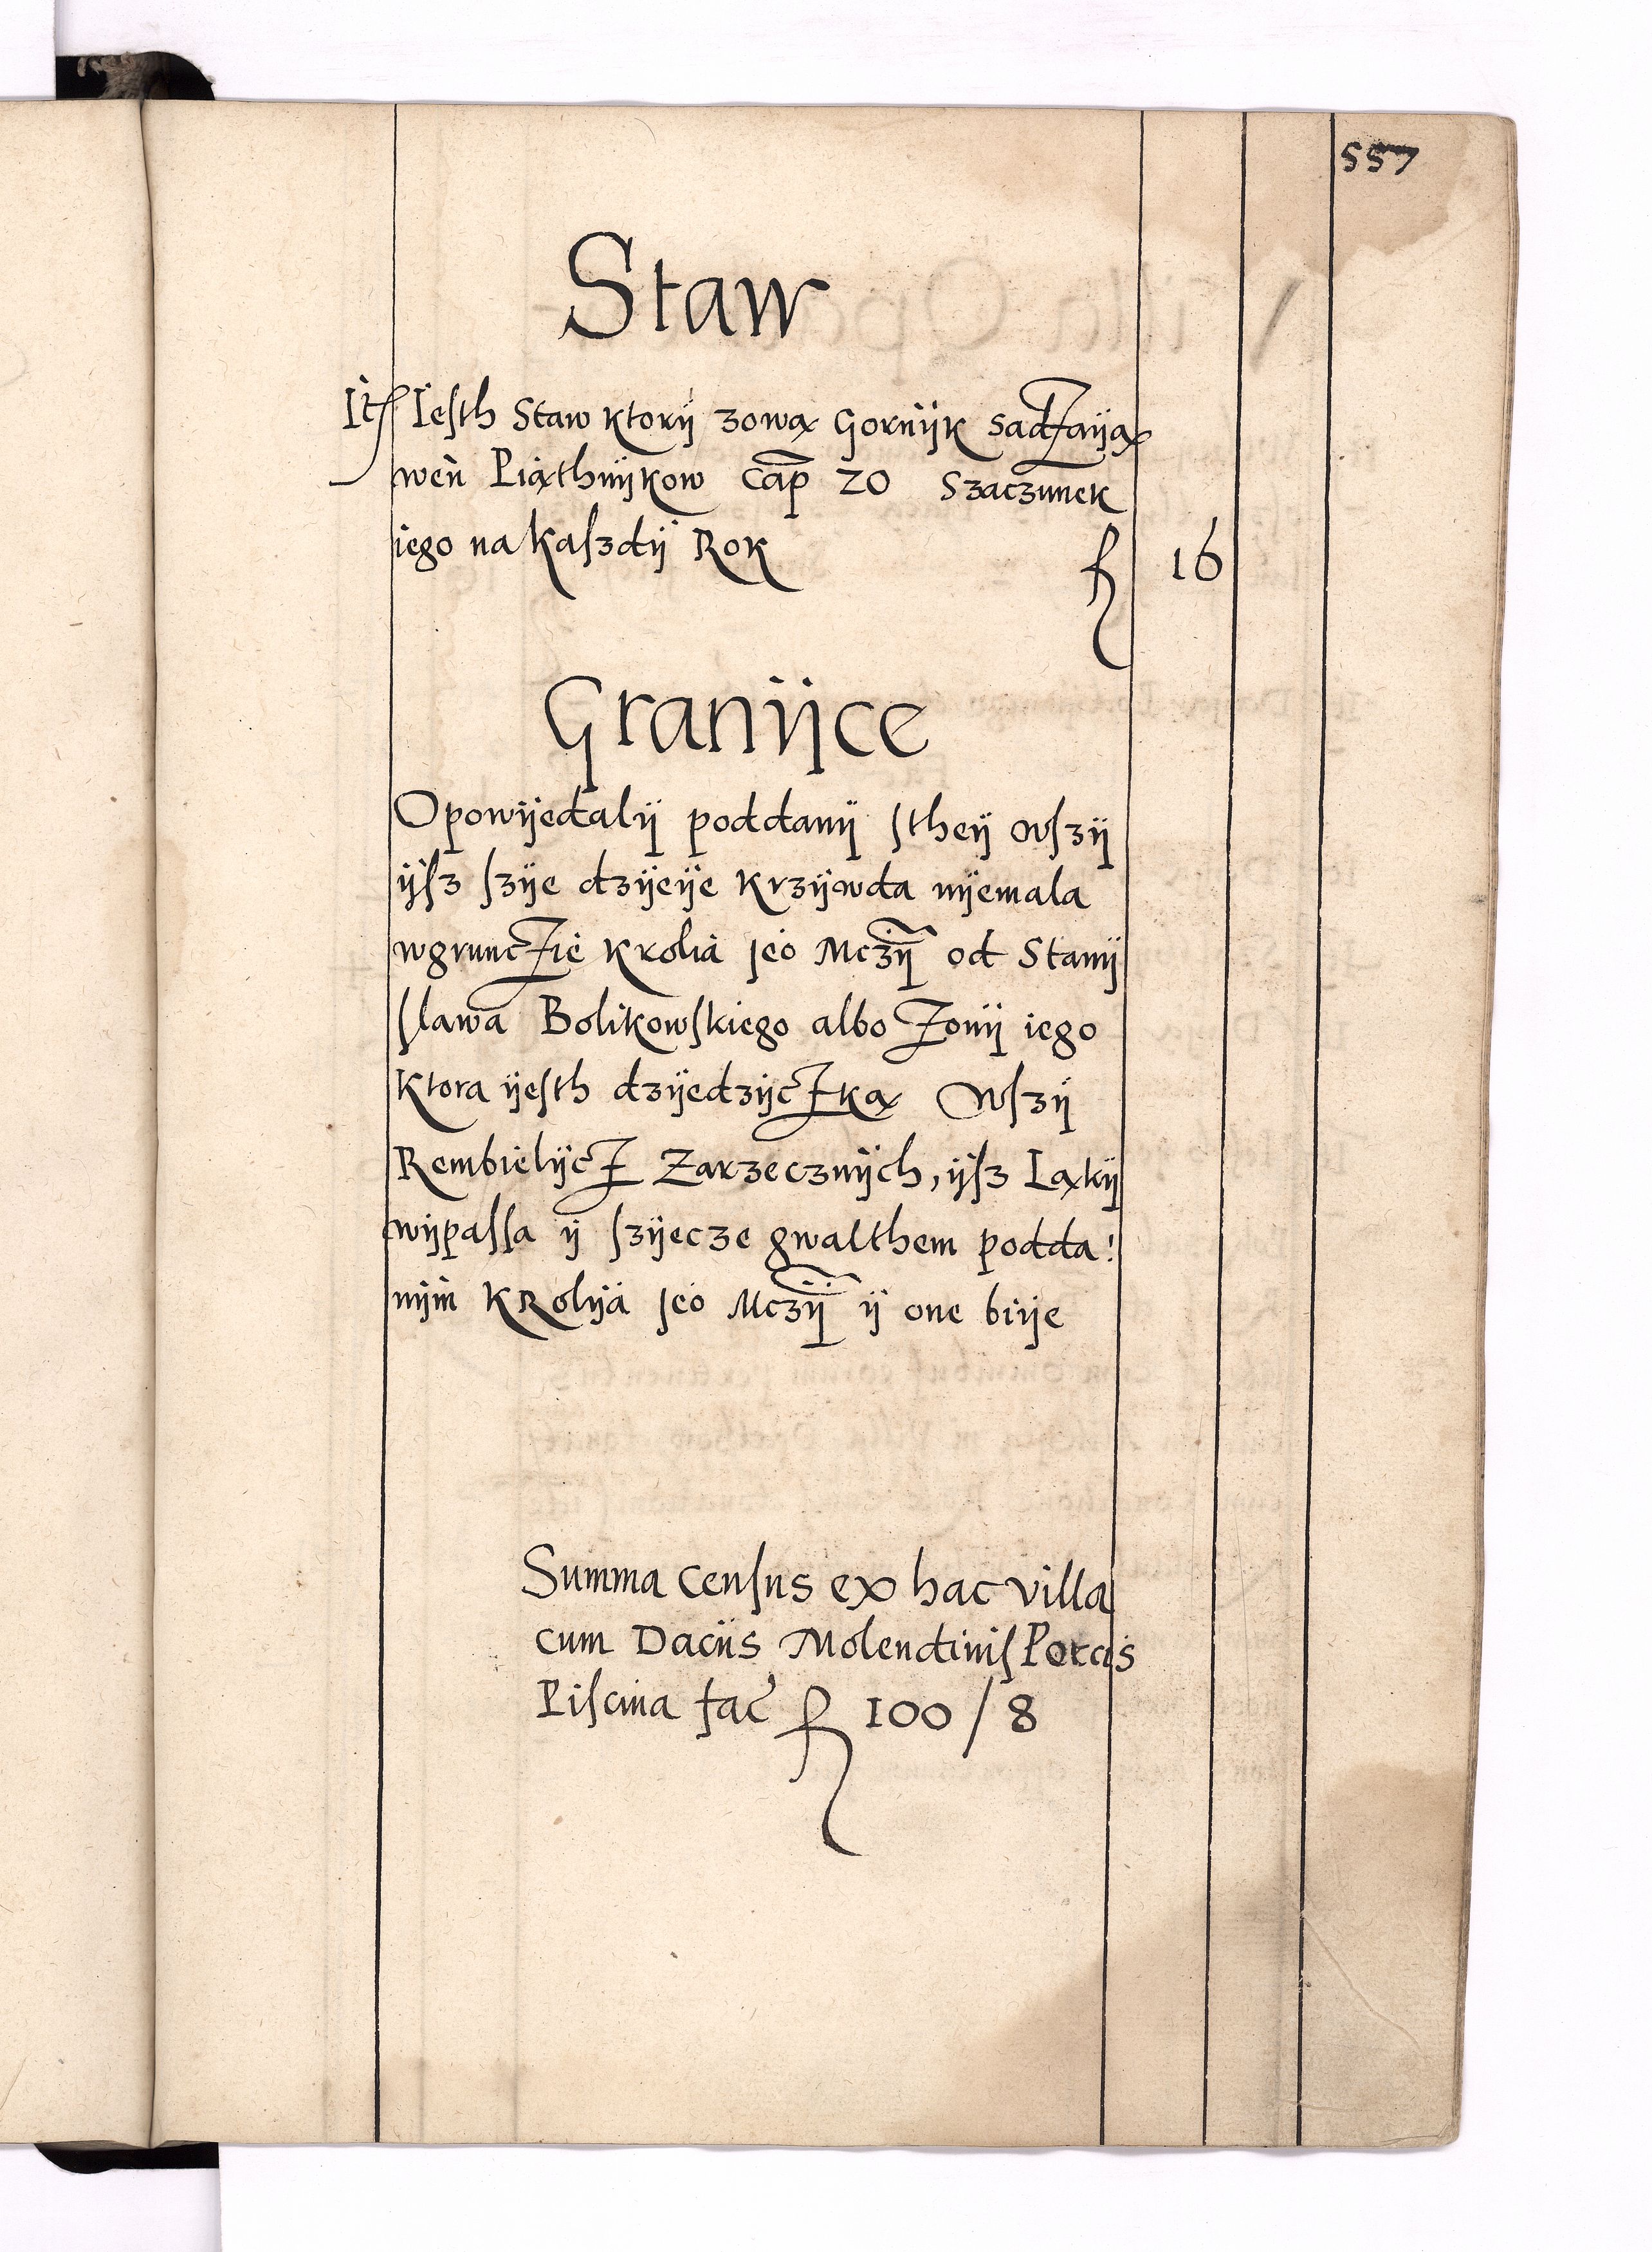 557
Staw
It Iesth Staw ktorÿ zową Gornÿk sadzaÿą
wen Piąthnÿkow Cap 20 Szaczunek
iego na kaszdÿ Rok f 16
Granÿce
Opowÿedalÿ poddanÿ stheÿ wszÿ
ÿsz szÿe dzÿeÿe krzÿwda nÿemala
wgrunczie krolia ieo Mczÿ od Stanÿ
slawa Bolikowskiego albo zonÿ iego
ktora ÿesth dzÿedzÿczką wszÿ
Rembielÿcz Zarzecznÿch, ÿsz Ląkÿ
wÿpassa ÿ szÿecze gwalthem podda
nÿm krolÿa ieo Mczÿ ÿ one biÿe
Summa census ex hac villa
cum Daciis Molendinis Porcis
Piscina fac f 100/8